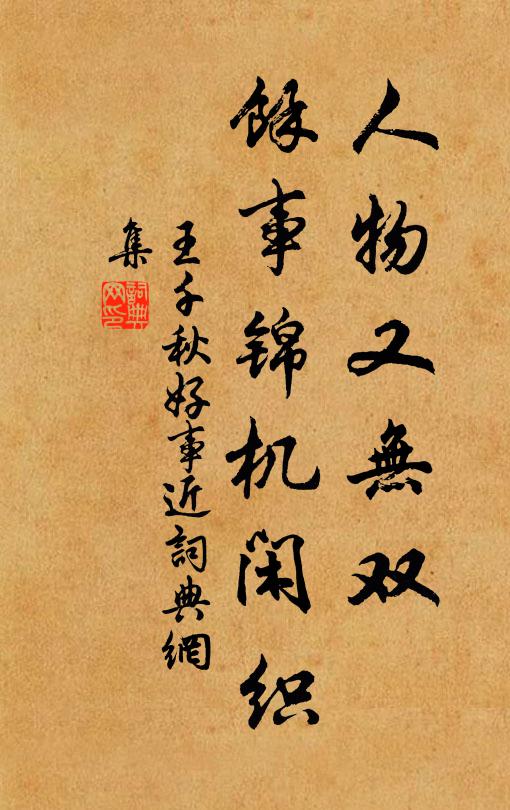 人物又無双
餘事锦机闲织
王千秋好事近詞典網
集
詞典
网印